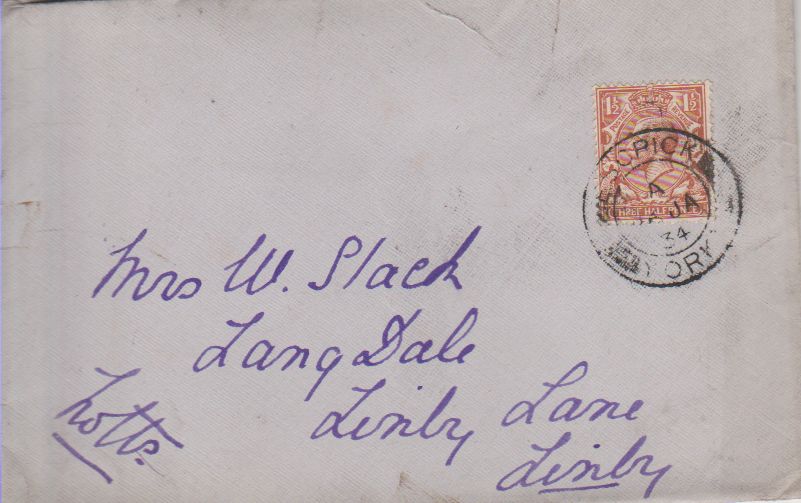 1½ 1½
POSTAGE REVENUE
THREE HALF
A
JA
34
Mrs W. Slack
Lang Dale
Linby Lane
Linby
Notts.